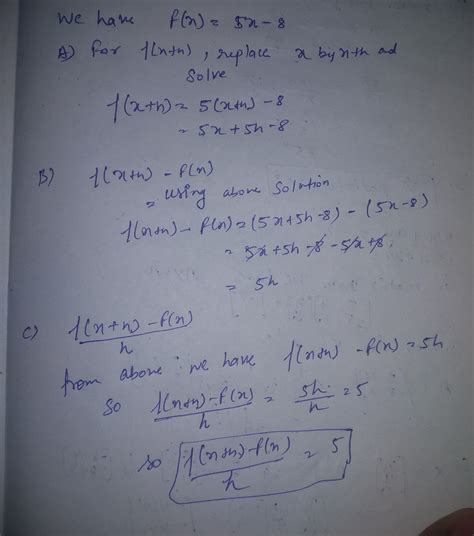 We have f(x) = 5x - 8
A) For f(x+h), replace x by x+h ad
Solve
f(x+h) = 5(x+h) - 8
= 5x + 5h - 8
B) f(x+h) - f(x)
= using above Solution
f(x+h) - f(x) = (5x + 5h - 8) - (5x - 8)
= 5x + 5h - 8 - 5x + 8
= 5h
C) f(x+h) - f(x)
h
from above we have f(x+h) - f(x) = 5h
So f(x+h) - f(x) / h = 5h / h = 5
so f(x+h) - f(x) / h = 5